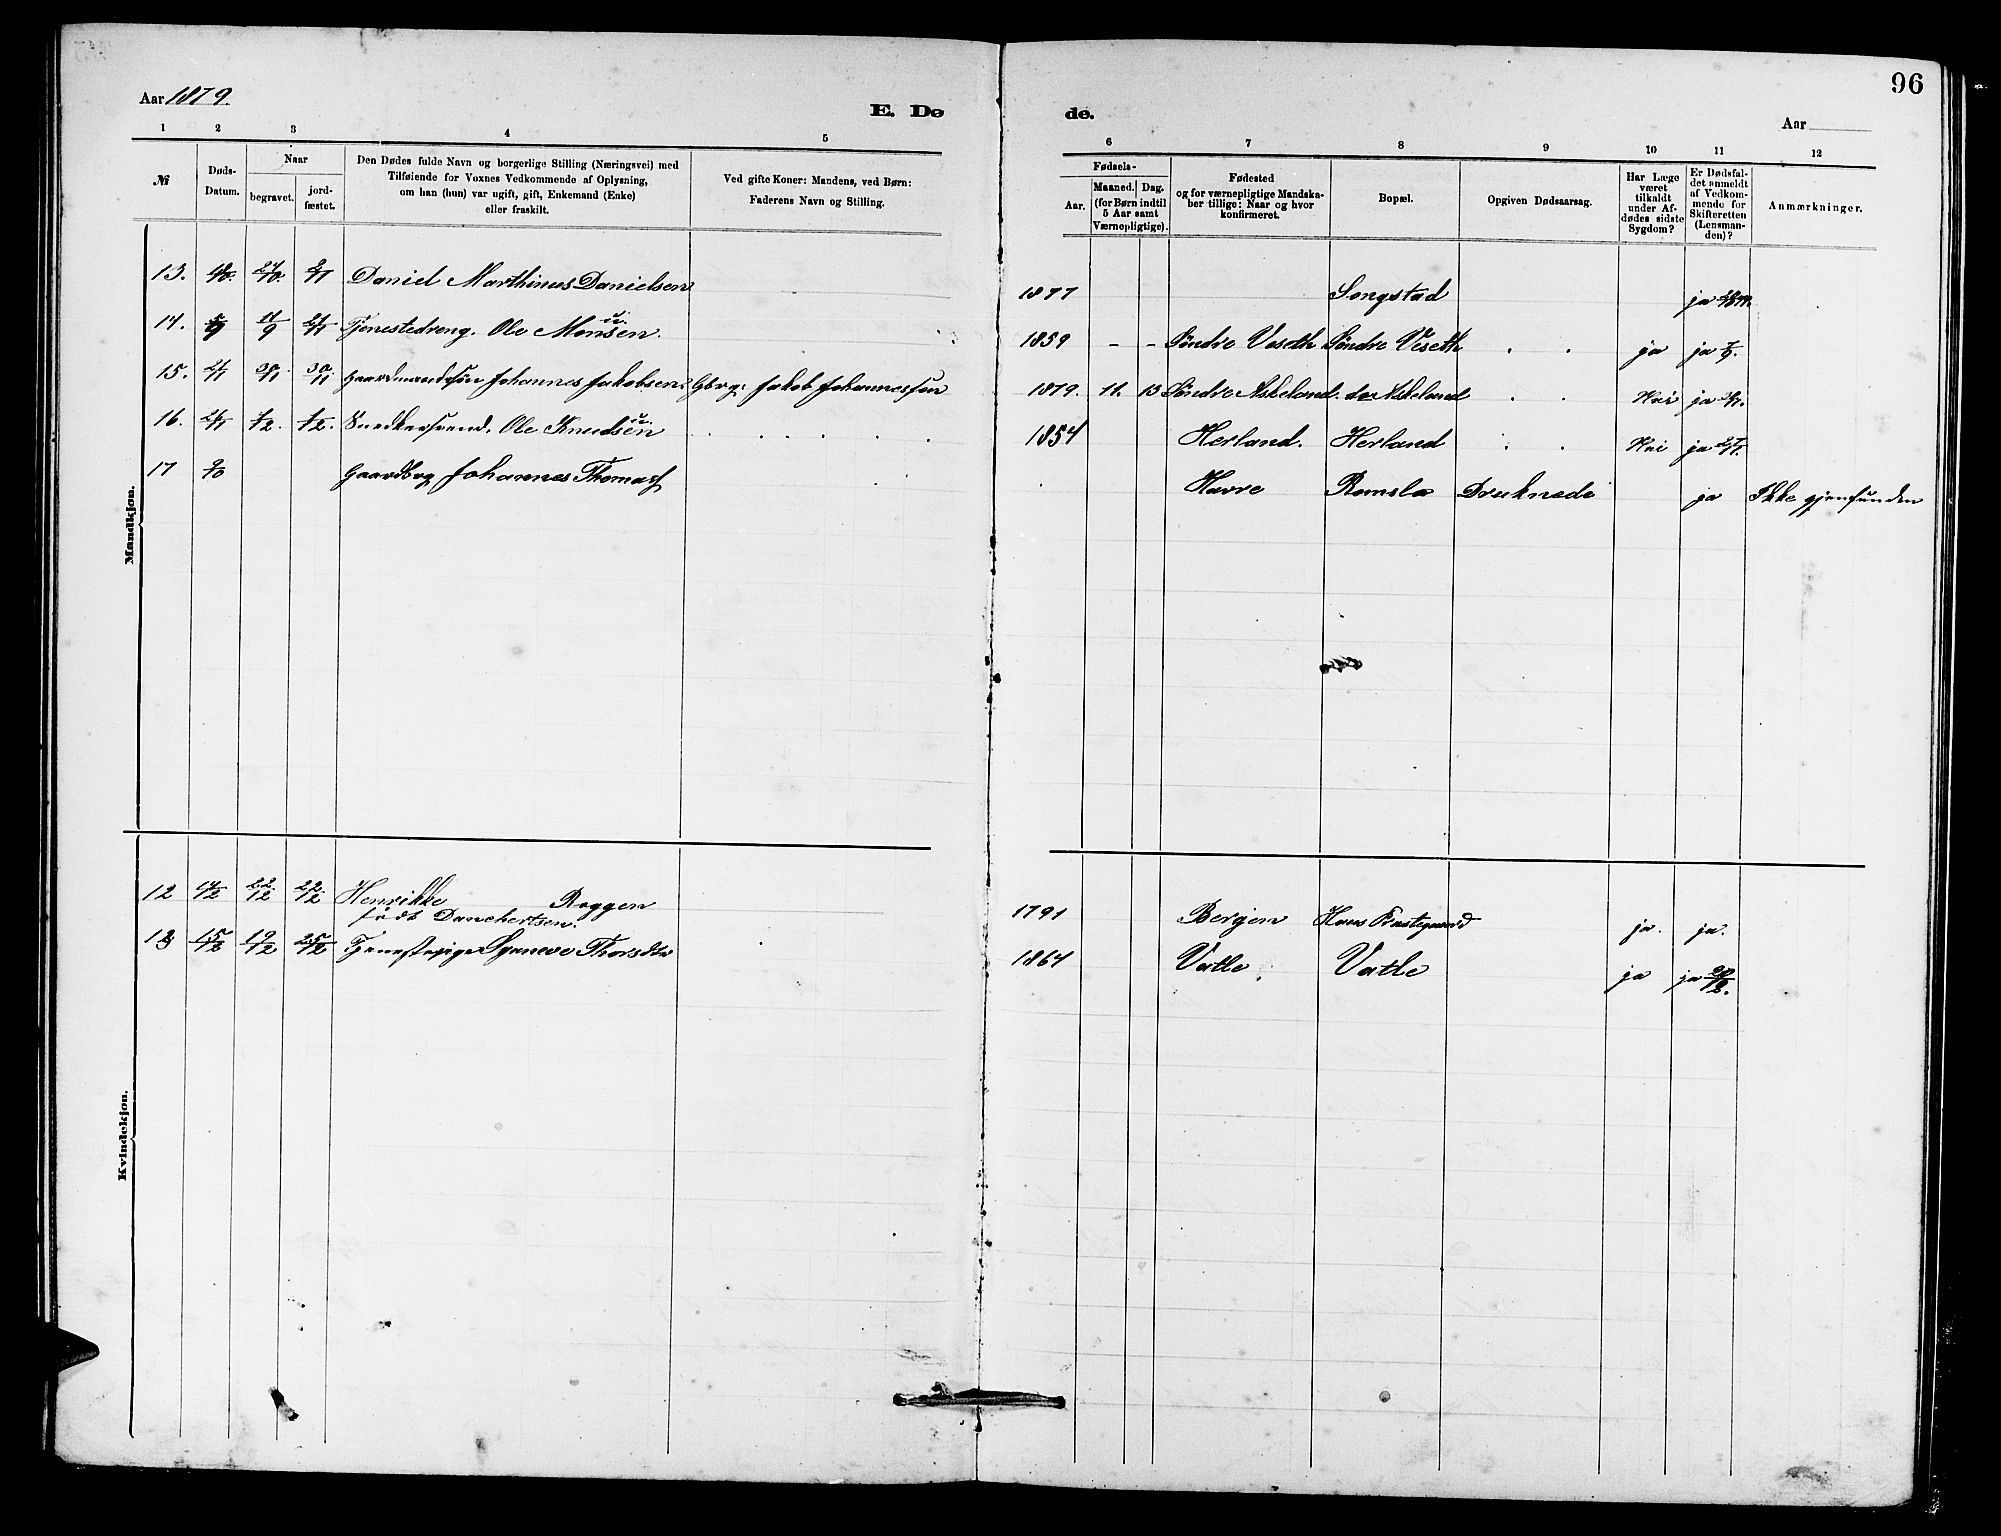 96
Aar 1879.
E. Dø
de.
Aar
1 2 3 4 5
6 7 8 9 10 11 12
№
Døds-
Datum.
Naar
begravet.
jord-
fæstet.
Den Dødes fulde Navn og borgerlige Stilling (Næringsvei) med
Tilføiende for Voxnes Vedkommende af Oplysning,
om han (hun) var ugift, gift, Enkemand (Enke)
eller fraskilt.
Ved gifte Koner: Mandens, ved Børn:
Faderens Navn og Stilling.
Fødsels-
Aar.
Maaned. Dag.
(for Børn indtil
5 Aar samt
Værnepligtige).
Fødested
og for værnepligtige Mandska-
ber tillige: Naar og hvor
konfirmeret.
Bopæl.
Opgiven Dødsaarsag.
Har Læge
været
tilkaldt
under Af-
dødes sidste
Sygdom?
Er Dødsfal-
det anmeldt
af Vedkom-
mende for
Skifteretten
(Lensman-
den)?
Anmærkninger.
Mandkjøn.
13. 24/10. 2/11 Daniel Marthinus Danielsen
1877 Songstad ja
14. 5/9 11/9 21/11 Tjenestedreng. Ole Monsen. u.
1859 - - Søndre Veseth Søndre Veseth . . ja ja 7/9.
15. 21/11 30/11 30/11 Gaardmandssøn Johannes Jakobsen. Gbrg. Jakob Johannessøn
1879. 11. 13 Søndre Askeland. do Askeland . . Nei ja
16. 26/11 Snedkersvend. Ole Knudsen u.
1854 Herland. Herland . . Nei ja 27/11.
17 Gaardbrg Johannes Thomas
Havre Romslo Druknede ja Ikke gjenfunden
Kvindekjøn.
12 14/12 22/12 22/12 Henrikke Roggen
født Danchertsen.
1791 Bergen Haus Præstegaard ja. ja.
13 15/12 19/12 25/12 Tjenestepige Synneve Thorsdtr
1864 Vatle. Vatle ja ja